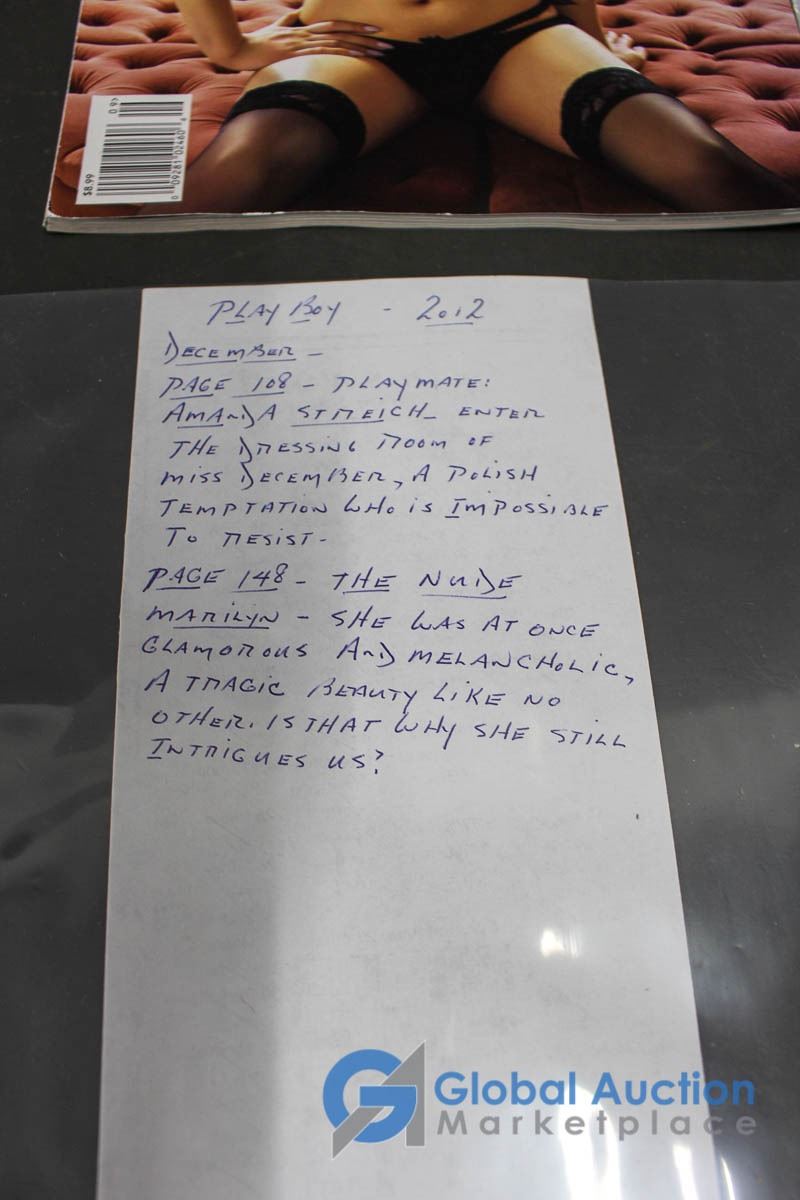 09>
$8.99
0 09281 02460 4
PLAYBOY - 2012
DECEMBER -
PAGE 108 - PLAYMATE:
AMANDA STREICH - ENTER
THE DRESSING ROOM OF
MISS DECEMBER, A POLISH
TEMPTATION WHO IS IMPOSSIBLE
TO RESIST -
PAGE 148 - THE NUDE
MARILYN - SHE WAS AT ONCE
GLAMOROUS AND MELANCHOLIC,
A TRAGIC BEAUTY LIKE NO
OTHER. IS THAT WHY SHE STILL
INTRIGUES US?
Global Auction
Marketplace